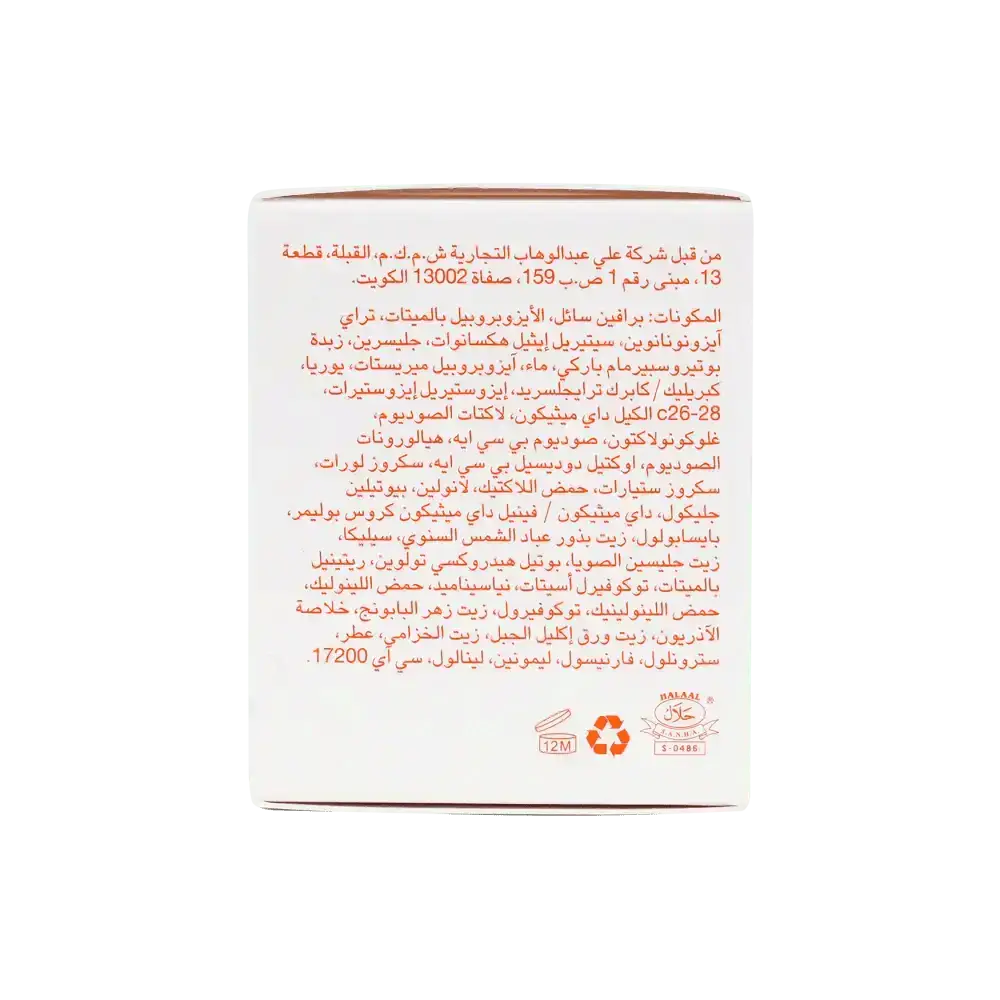 من قبل شركة علي عبدالوهاب التجارية ش.م.ك.م، القبلة، قطعة
13، مبنى رقم 1 ص.ب 159، صفاة 13002 الكويت.
المكونات: برافين سائل، الأيزوبروبيل بالميتات، تراي
آيزونونانوين، سيتيريل إيثيل هكسانوات، جليسرين، زبدة
بوتيروسبيرمام باركي، ماء، آيزوبروبيل ميريستات، يوريا،
كبريليك/ كابرك ترايجلسريد، إيزوستيريل إيزوستيرات،
c26-28 الكيل داي ميثيكون، لاكتات الصوديوم،
غلوكونولاكتون، صوديوم بي سي ايه، هيالورونات
الصوديوم، اوكتيل دوديسيل بي سي ايه، سكروز لورات،
سكروز ستيارات، حمض اللاكتيك، لانولين، بيوتيلين
جليكول، داي ميثيكون / فينيل داي ميثيكون كروس بوليمر،
بايسابولول، زيت بذور عباد الشمس السنوي، سيليكا،
زيت جليسين الصويا، بوتيل هيدروكسي تولوين، ريتينيل
بالميتات، توكوفيرل أسيتات، نياسيناميد، حمض اللينوليك،
حمض اللينولينيك، توكوفيرول، زيت زهر البابونج، خلاصة
الآذريون، زيت ورق إكليل الجبل، زيت الخزامي، عطر،
سترونلول، فارنيسول، ليمونين، لينالول، سي آي 17200.
HALAAL ®
حلال
S.A.N.H.A.
S-0486
12M